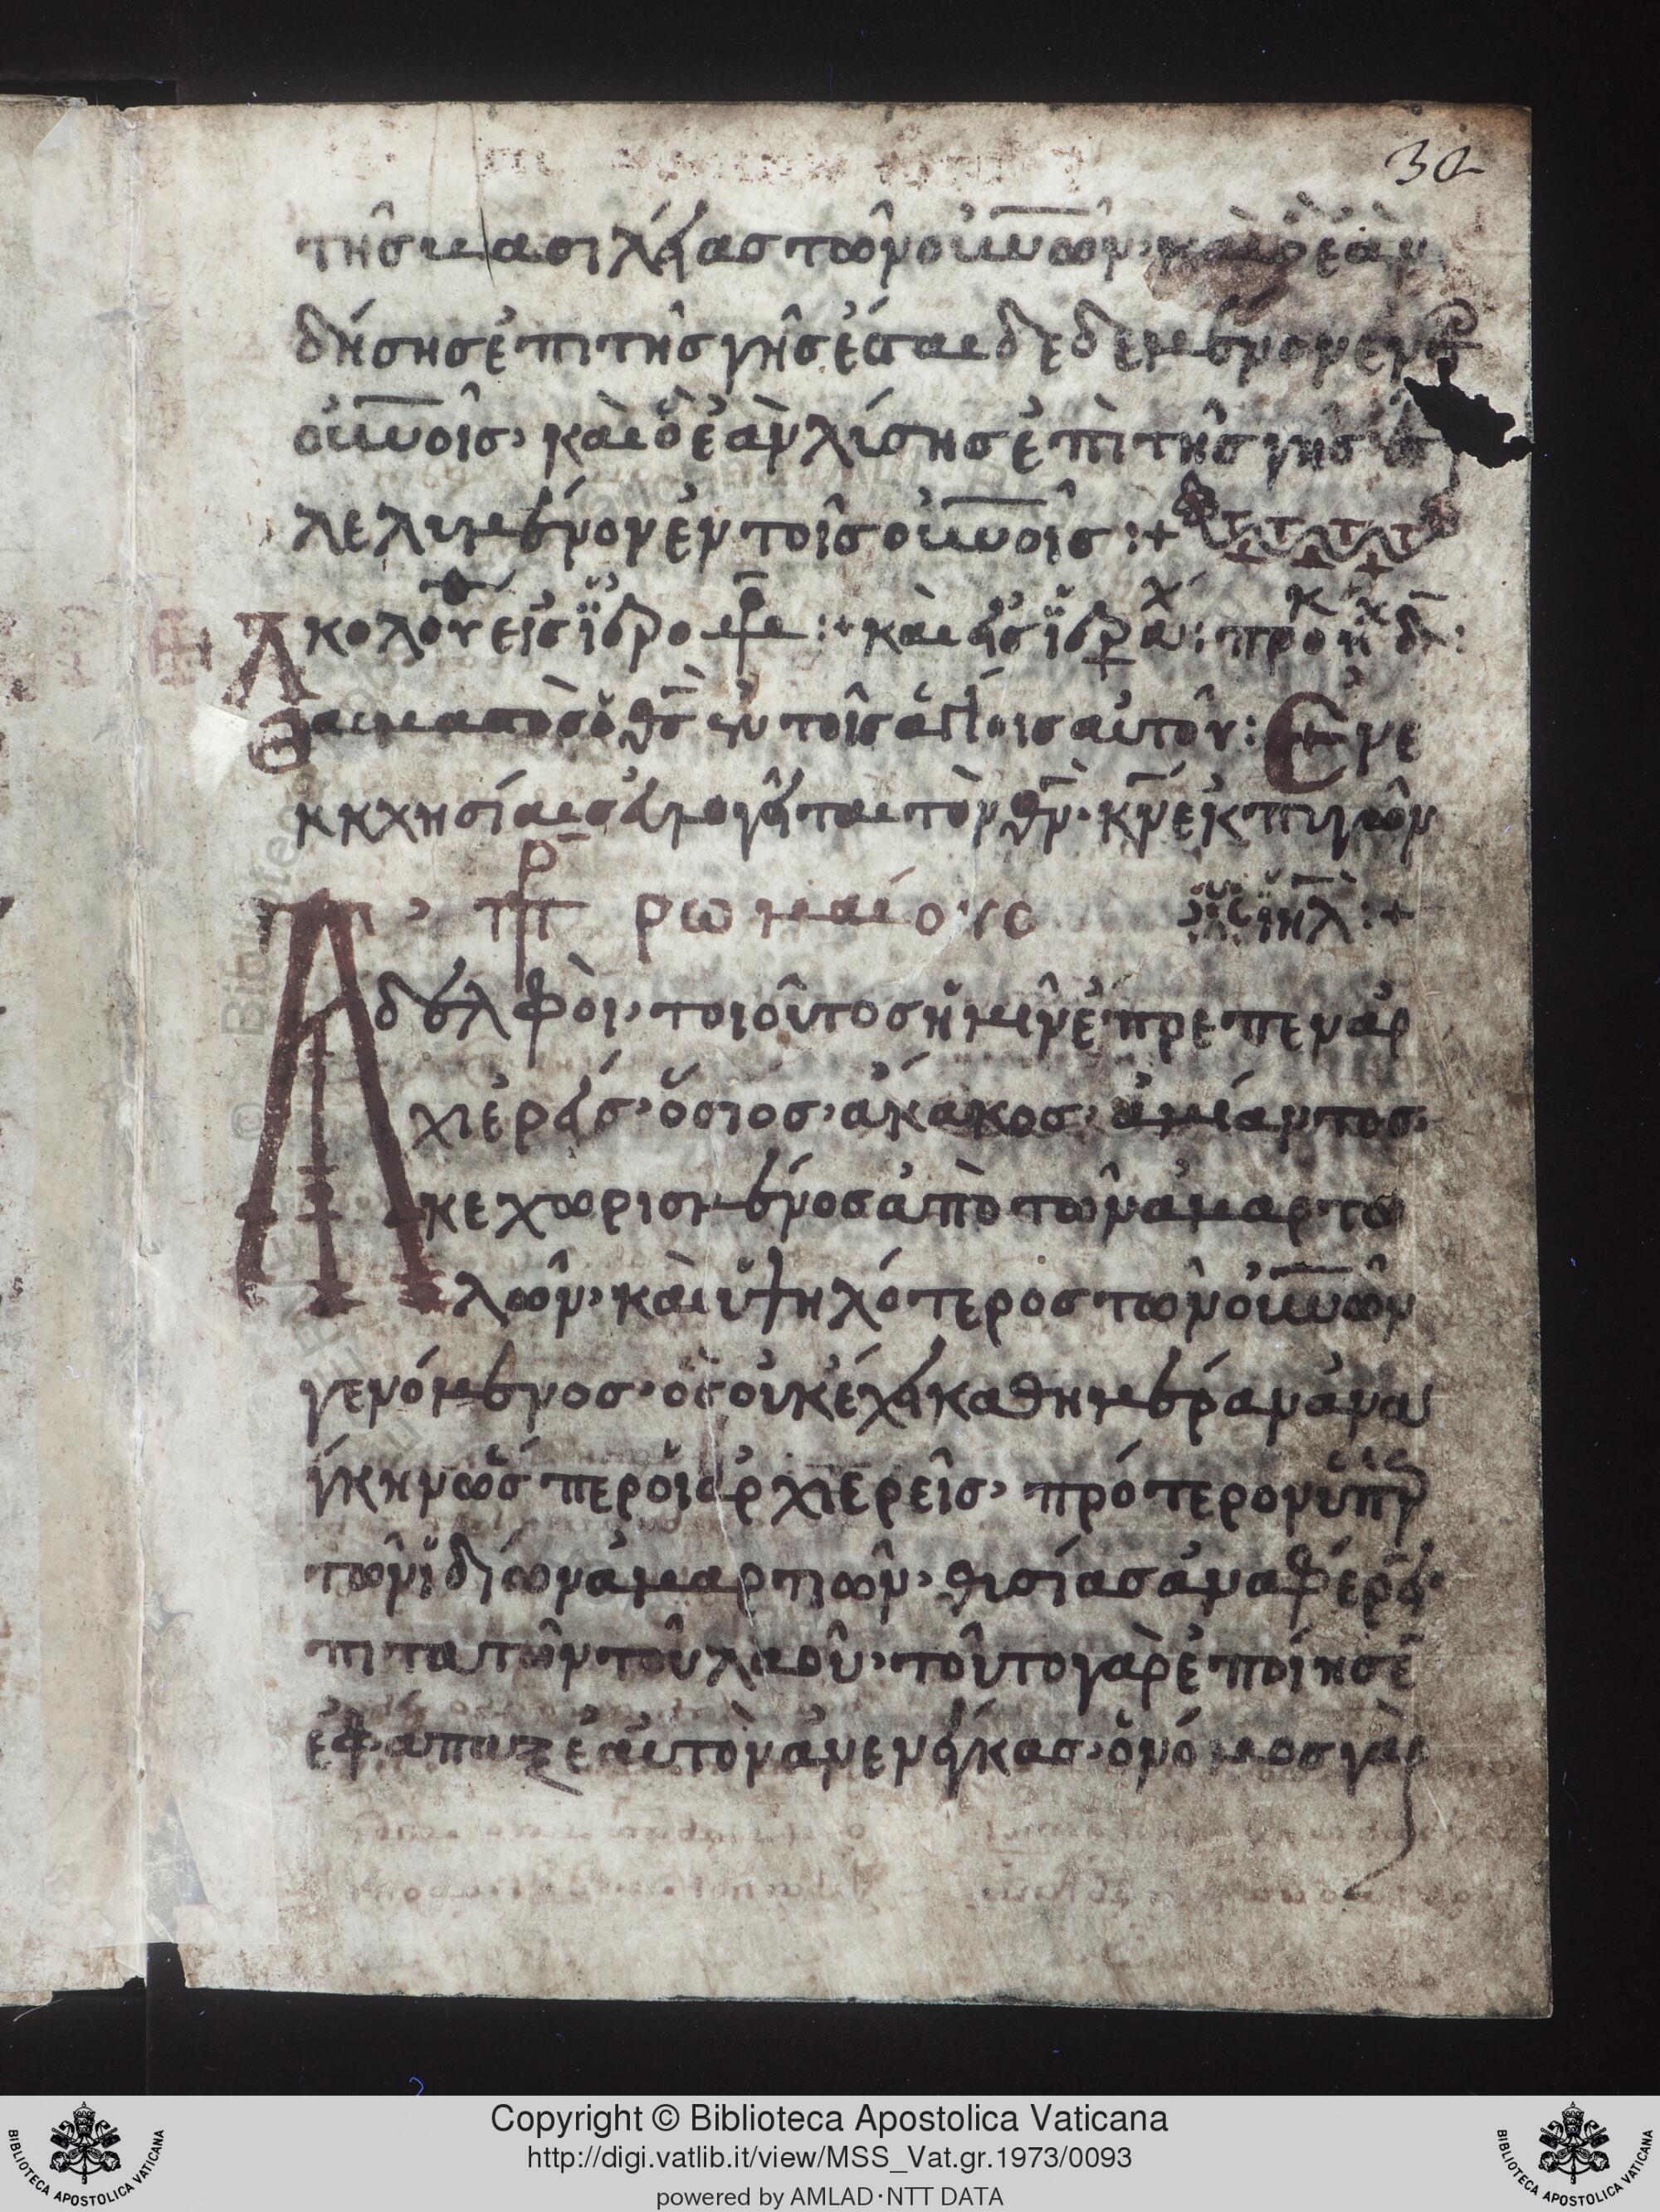 32
τῆς βασιλείας τῶν οὐνῶν· καὶ ὃ ἐὰν
δήσης ἐπὶ τῆς γῆς ἔσται δεδεμένον ἐν τ
οὐνοῖς· καὶ ὃ ἐὰν λύσης ἐπὶ τῆς γῆς
λελυμένον ἐν τοῖς οὐνοῖς :+
Ακολου εἰς ἱερομρ :+ καὶ εἰς
Θαυμαστὸς ὁ θς ἐν τοῖς ἁγίοις αὐτοῦ : Ἐν ε
κκλησίαις εὐλογεῖται τὸν θν· κν ἐκ πηγῶν
ἰηλ :+
πρ ρωμαίους
Αδελφοὶ· τοιοῦτος ἡμῖν ἔπρεπεν ἀρ
χιερεύς· ὅσιος· ἄκακος· ἀμίαντος·
κεχωρισμένος ἀπὸ τῶν ἁμαρτω
λῶν· καὶ ὑψηλότερος τῶν οὐνῶν
γενόμενος· ὃς οὐκ ἔχει καθημέραν ἀνα
γκην ὥσπερ οἱ ἀρχιερεῖς· πρότερον ὑπὲρ
τῶν ἰδίων ἁμαρτιῶν· θυσίας ἀναφέρειν·
πιτα τῶν τοῦ λαοῦ· τοῦτο γὰρ ἐποίησε
ἐφάπαξ ἑαυτὸν ἀνενείκας· ὁ νόμος γὰρ
Copyright © Biblioteca Apostolica Vaticana
http://digi.vatlib.it/view/MSS_Vat.gr.1973/0093
powered by AMLAD·NTT DATA
BIBLIOTECA APOSTOLICA VATICANA
BIBLIOTECA APOSTOLICA VATICANA